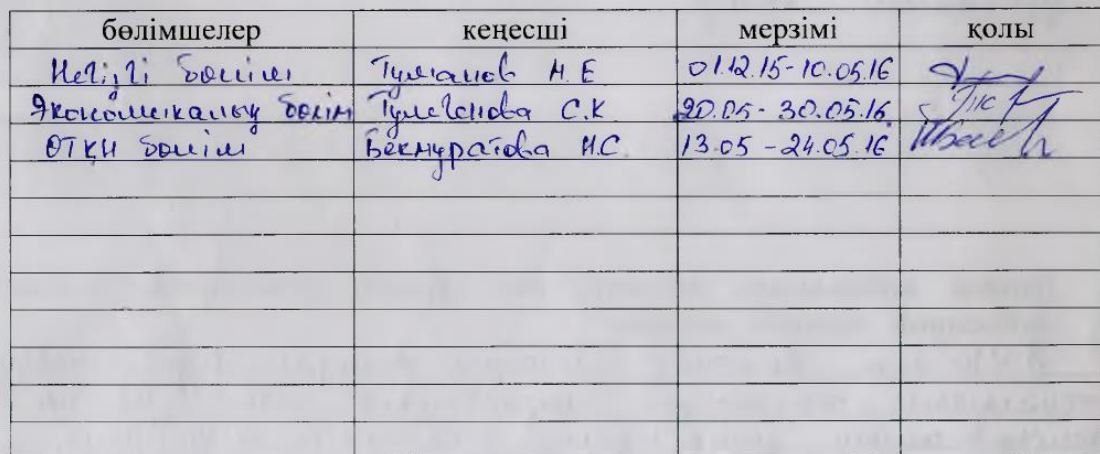 бөлімшелер кеңесші мерзімі қолы
Негізгі бөлім Тулганов Н. Е 01.12.15-10.05.16
Экономикалық бөлім Тулегенова С.К 20.05- 30.05.16
ӨТҚН бөлім Бекмуратова Н.С. 13.05 -24.05.16